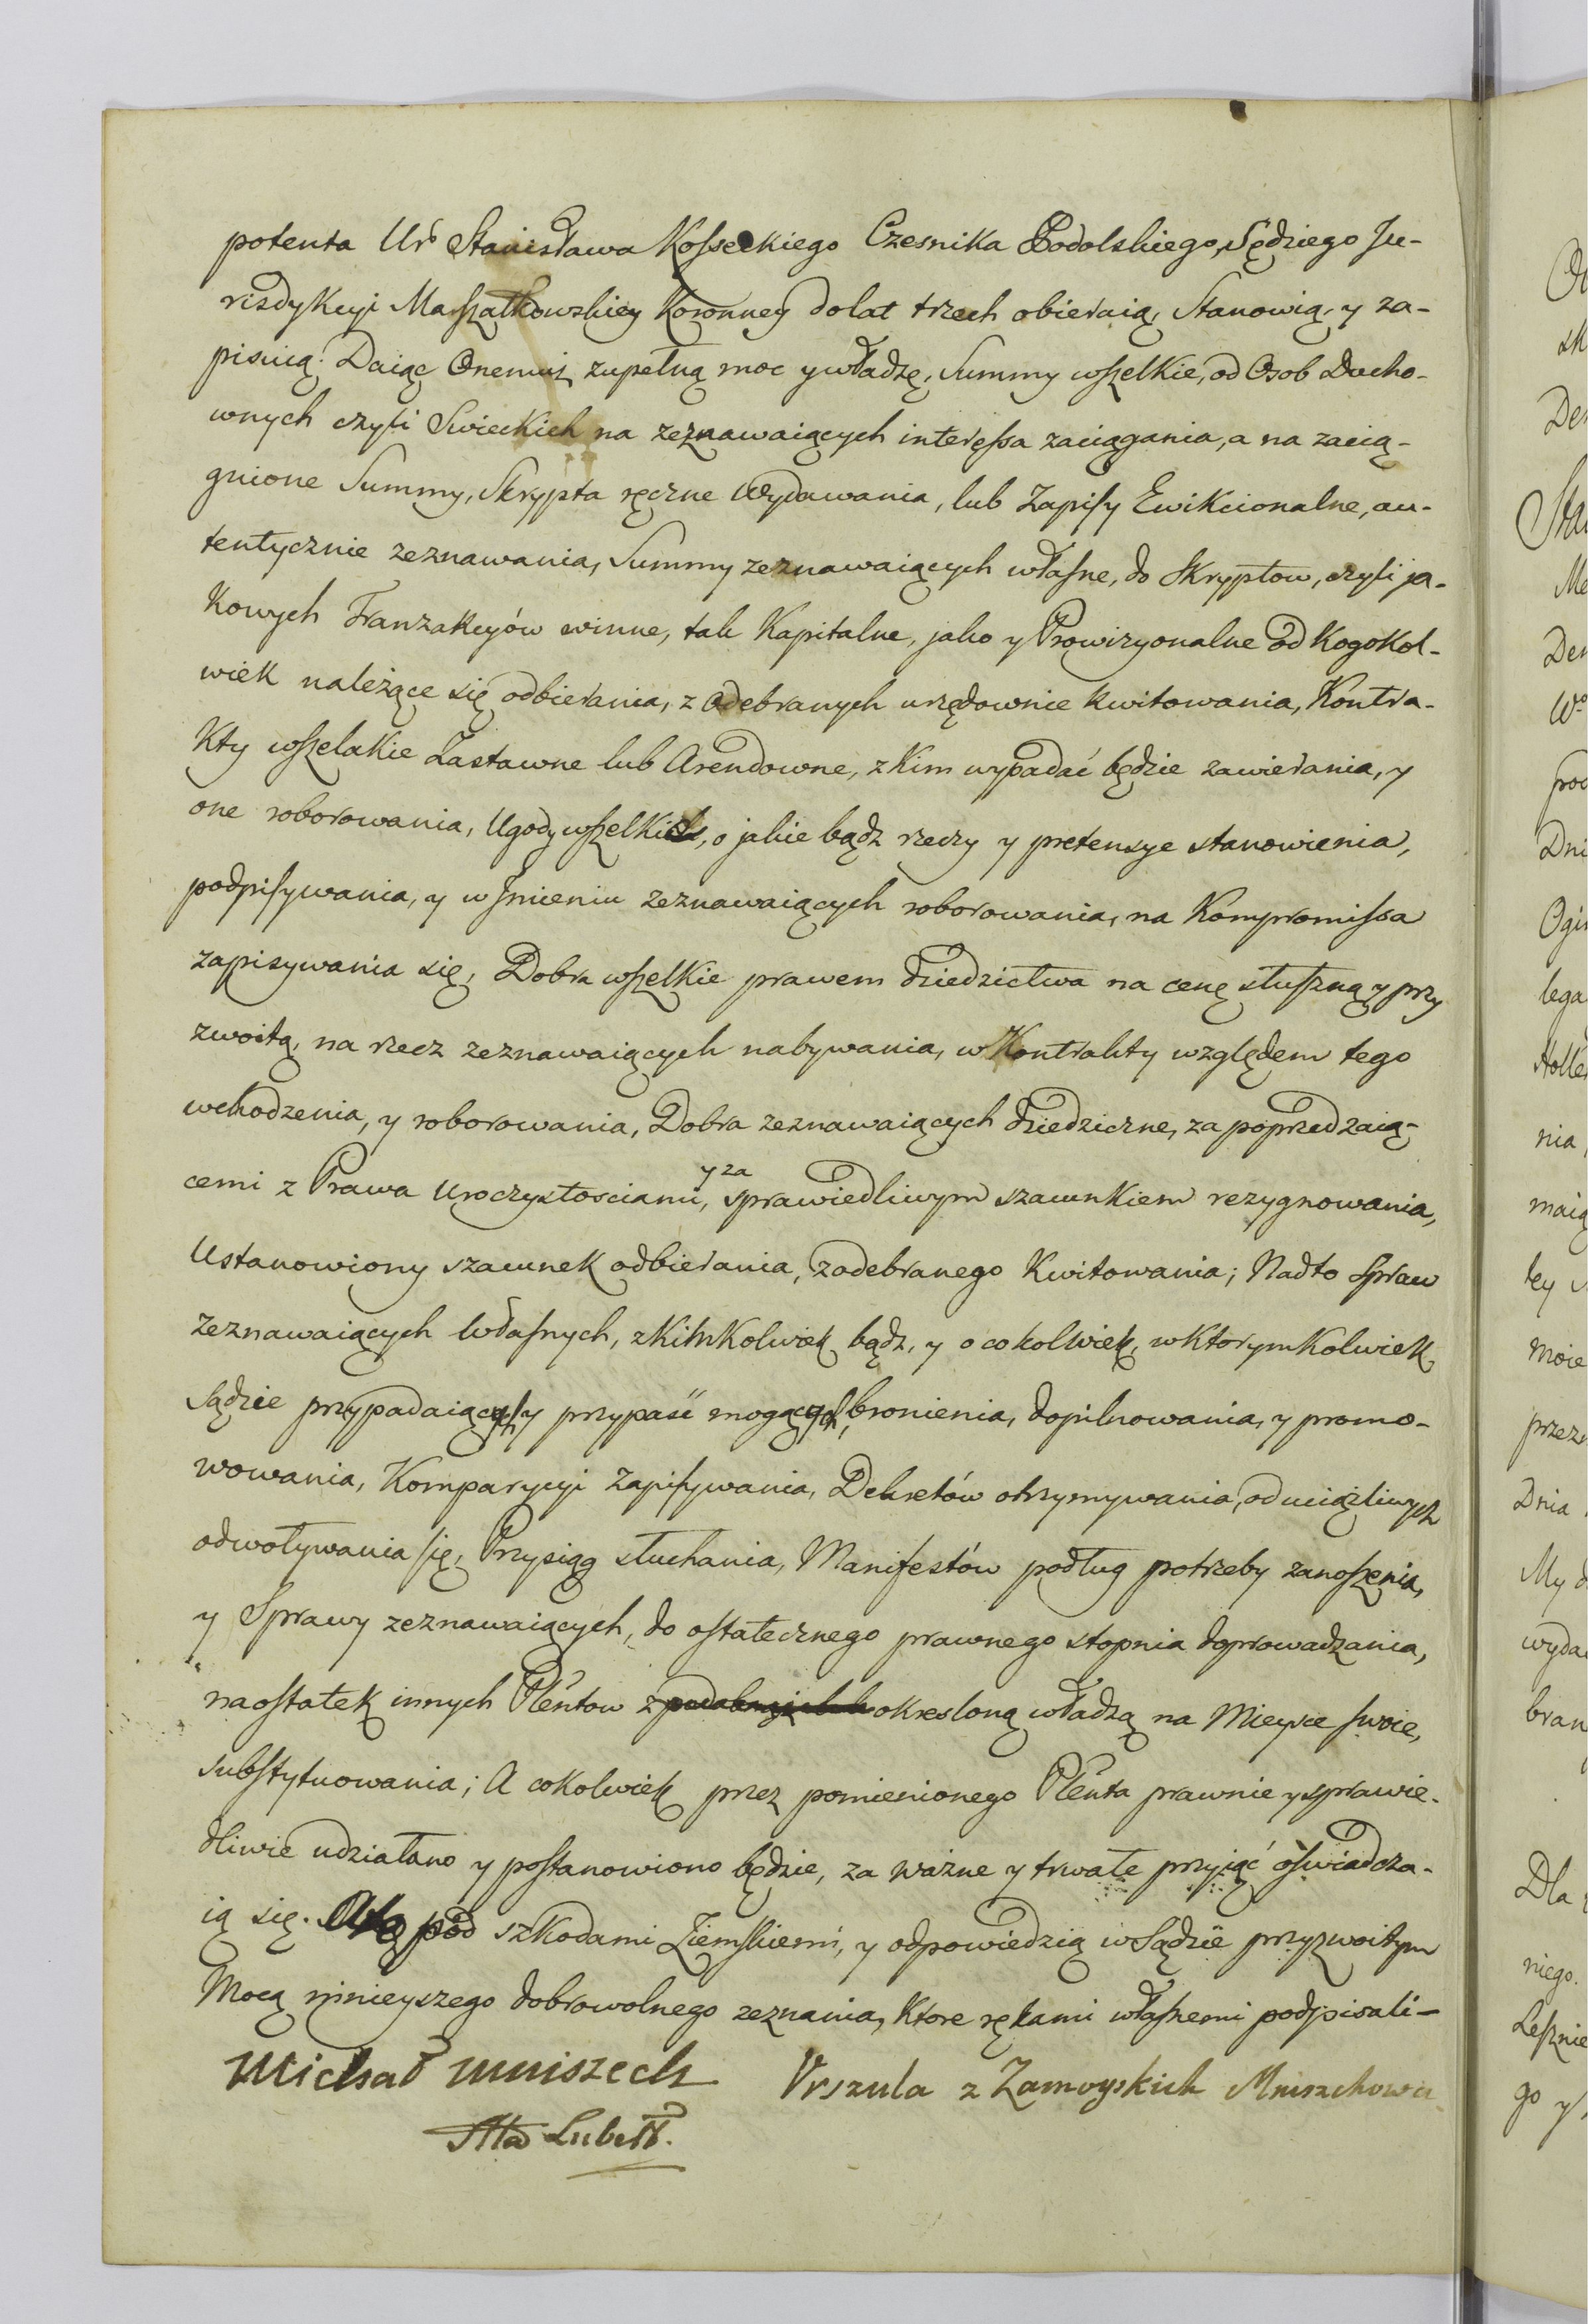 potenta Ur̃o Stanisława Kosseckiego Czesnika Podolskiego, Sędziego Ju-
risdykcyi Marszałkowskiey Koronney do lat trzech obieraią, Stanowią, y za-
pisuią. Daiąc Onemuż zupełną moc y władzę, Summy wszelkie, od Osob Ducho-
wnych czyli Swieckich na zeznawaiących interessa zaciągania, a na zacią-
gnione Summy, Skrypta ręczne Wydawania, lub Zapisy Ewikcionalne, au-
tentycznie zeznawania, Summy zeznawaiących własne, do Skryptow, czyli ja-
kowych Tranzakcyów winne, tak Kapitalne, jako y Prowizyonalne od kogokol-
wiek należące się odbierania, z odebranych urzędownie kwitowania, Kontra-
kty wszelakie Zastawne lub Arendowne, z kim wypadać będzie zawierania, y
one roborowania, Ugody wszelkie, o jakie bądz rzeczy y pretensye stanowienia,
podpisywania, y w Jmieniu zeznawaiących roborowania, na Kompromissa
zapisywania się, Dobra wszelkie prawem dziedzictwa na cenę słuszną y przy
zwoitą, na rzecz zeznawaiących nabywania, w Kontrakty względem tego
wchodzenia, y roborowania, Dobra zeznawaiących dziedziczne, za poprzedzaią-
cemi z Prawa Uroczystosciami, y za sprawiedliwym szacunkiem rezygnowania,
Ustanowiony szacunek odbierania, z odebranego Kwitowania; Nadto Spraw
zeznawaiących własnych, z kimkolwiek bądz, y o cokolwiek, w ktorymkolwiek
Sądzie przypadaiących y przypaść mogących, bronienia, dopilnowania, y promo-
wowania, Komparycyi zapisywania, Dekretów otrzymywania, od uciążliwych
odwoływania się, Przysiąg słuchania, Manifestów podług potrzeby zanoszenia,
y Sprawy zeznawaiących, do ostatecznego prawnego stopnia doprowadzania,
naostatek innych Plẽntow z okresloną władzą na Mieysce swoie,
substytuowania; A cokolwiek przez pomienionego Plẽnta prawnie y sprawie-
dliwie udziałano y postanowiono będzie, za ważne y trwałe przyjąć oświadcza-
ią się. pod szkodami Ziemskiemi, y odpowiedzią w Sądzie przyzwoitym
Mocą ninieyszego dobrowolnego zeznania, Ktore rękami własnemi podpisali-
Michał Mniszech Urszula z Zamoyskich Mniszchowa